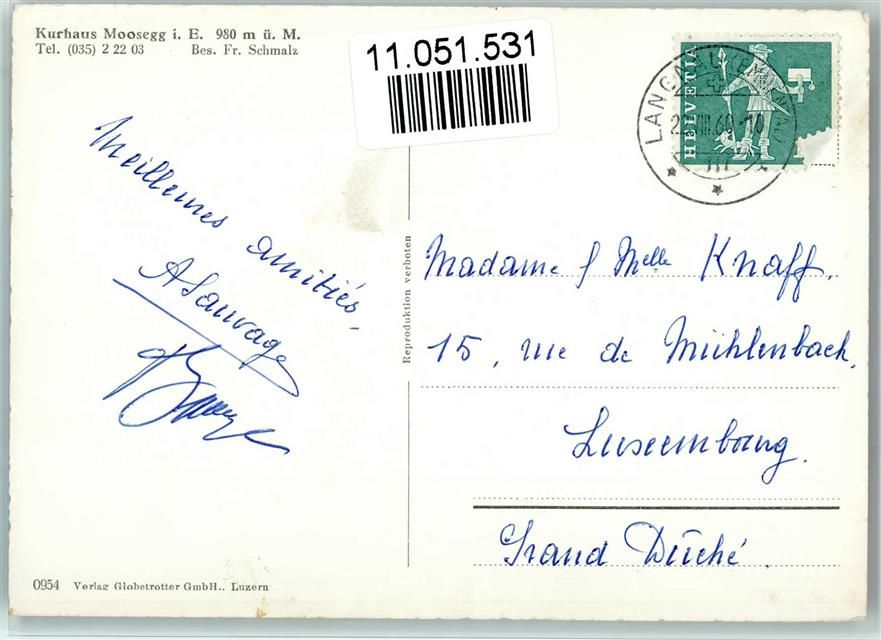 Kurhaus Moosegg i. E. 980 m ü. M.
Tel. (035) 2 22 03 Bes. Fr. Schmalz
11.051.531
HELVETIA
LANGNAU (EMMENTAL)
Meilleures amitiés.
ASauvage
Reproduktion verboten
Madame & Melle Knaff.
15, rue de Mühlenbach.
Luxembourg.
Grand Duché.
0954 Verlag Globetrotter GmbH., Luzern